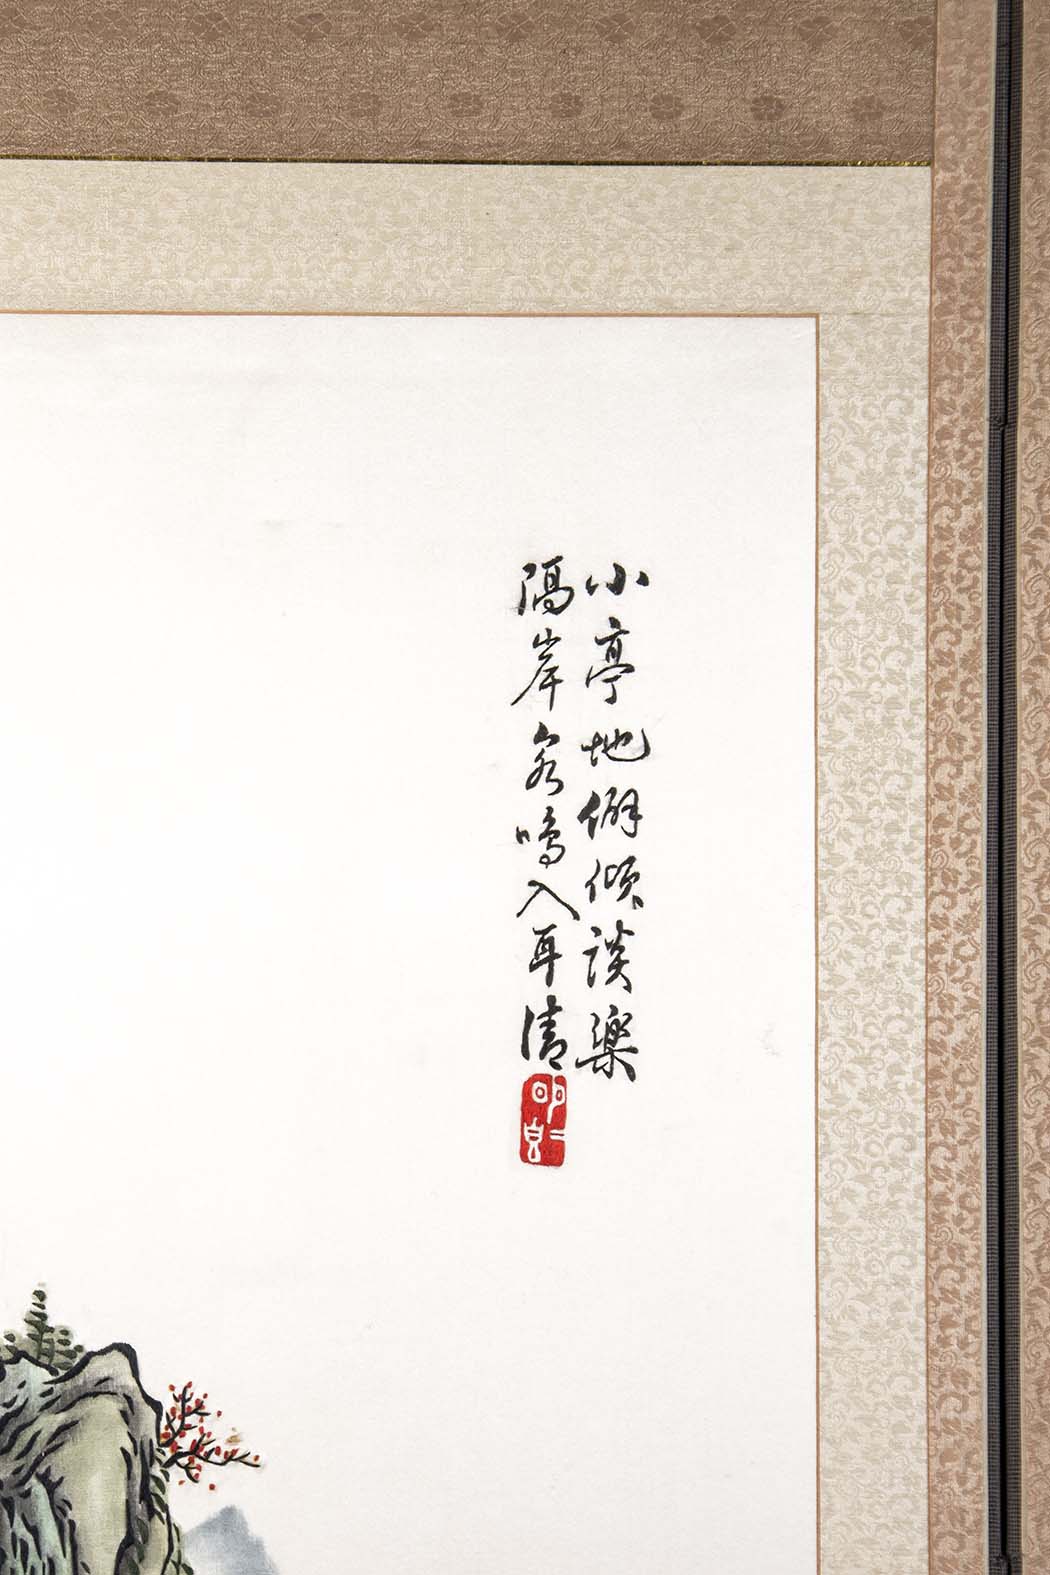 小亭地僻傾談樂
隔岸禽鳴入耳清
明良